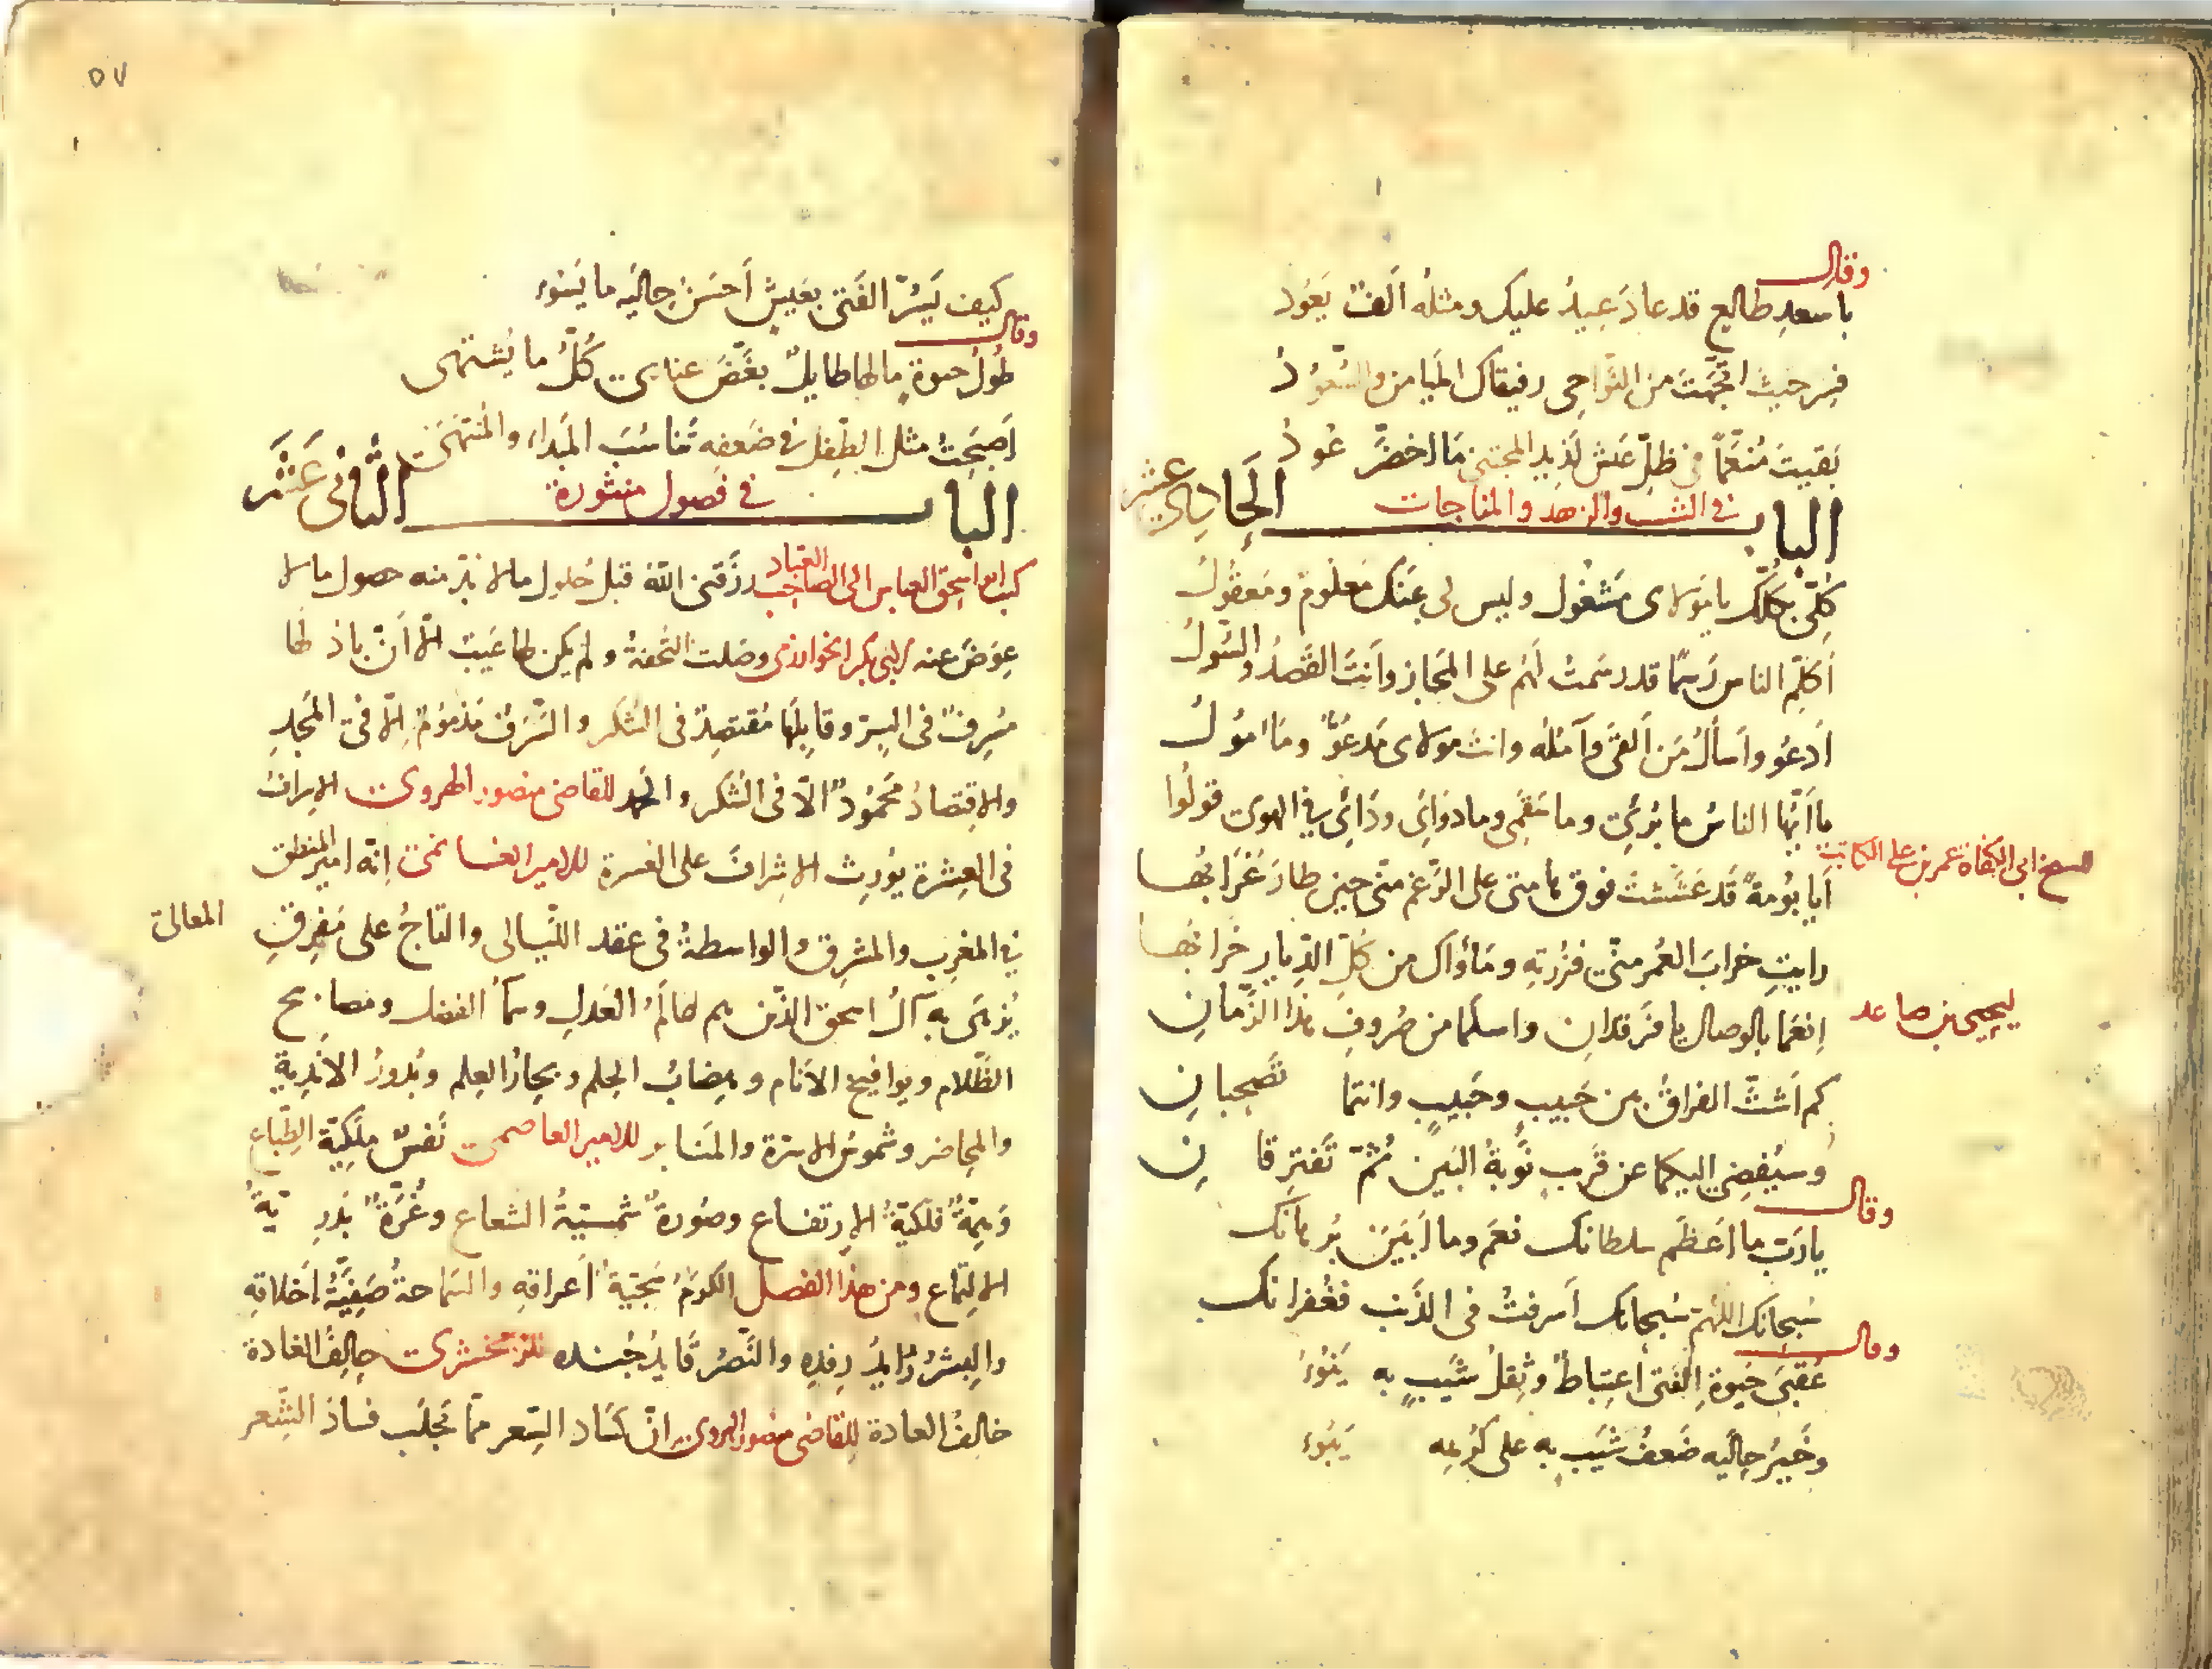 وقال
باسعدِ طالع قد عاد عيدٌ عليك ومثله ألفٌ يعود
فسر حيث اتجهت من النواحي رفيقاك الميامن والسعود
بقيت منعمًا في ظل عيش لذيذ المجتنى ما اخضر عود
الباب الحادي عشر
في الشيب والزهد والمناجات
كلّي بكلّك يا مولاي مشغول وليس لي عنك معلوم ومعقول
أكلم الناس رسمًا قد رسمت لهم على المجاز وأنت القصد والسول
أدعو وأسأل من ألقى وآمله وانت مولاي مدعوٌّ ومامول
يا أيها الناس ما برئي وما سقمي وما دوائي ودائي في الهوى قولوا
للشيخ ابي الكفاة عمر بن علي الكاتب
أيا بومةً قد عششت فوق هامتي على الرغم مني حين طار غرابها
رايتِ خراب العمر مني فزرته ومأواك من كل الديار خرابها
ليحيى بن صاعد
إنعما بالوصال يا فرقدان واسلما من صروف هذا الزمان
كم أشتّ الفراق من حبيب وحبيب وانتما تصحبان
وسيفضي اليكما عن قرب نوبة البين ثم تفترقان
وقال
يا رب ما أعظم سلطانك نعم وما أبين برهانك
سبحانك اللهم سبحانك أسرفت في الذنب فغفرانك
وقال
عقبى حيوة الفتى اعتباط وثقل شيب به ينوء
وخير حاليه ضعف شيب به على كرهه يبوء
٥٧
كيف يسرّ الفتى بعيش أحسن حاليه ما يسوء
وقال
طول حيوة ما لها طايل بغّض عندي كل ما يشتهى
أصبحت مثل الطفل في ضعفه تناسب المبداء والمنتهى
الباب الثاني عشر
في فصول منثورة
كتب ابو اسحق الصابي الى الصاحب العباد رزقني الله قبل حلول ما لا بدّ منه حصول ما لا
عوض عنه لابي بكر الخوارزمي وصلت التحفة ولم يكن لها عيب الّا أنّ باذلها
مسرف في البرّ وقابلها مقتصد في الشكر والسرف مذموم إلّا في المجد
والاقتصاد محمود الّا في الشكر والحمد للقاضي منصور الهروي الإسراف
في العشرة يورث الإشراف على العسرة للامير الغسانمي إنّه امير المنطق
في المغرب والمشرق والواسطة في عقد الليالي والتاج على مفرق المعالي
يزهى به آل اسحق الذين هم معالم العدل وسماء الفضل ومصابيح
الظلام ويوافيخ الأنام وهضاب الحلم وبحار العلم وبدور الأندية
والمحاضر وشموس الاسرة والمنابر للامير العاصمي نفس ملكية الطباع
وهمّة فلكية الإرتفاع وصورة شمسية الشعاع وغرّة بدرية
الإلتماع ومن هذا الفصل الكرم سجية أعراقه والسماحة صفية أخلاقه
والبشر رايد رفده والنصر قايد جنده للزمخشري حالف الغادة
خالف العادة للقاضي منصور الهروي انّ كساد الشعر ممّا تجلب فساد الشعر